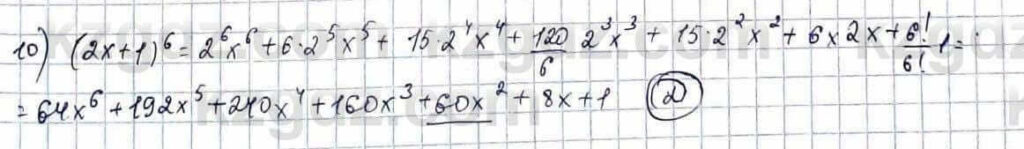 10) (2x+1)⁶ = 2⁶x⁶ + 6·2⁵x⁵ + 15·2⁴x⁴ + 120/6 2³x³ + 15·2²x² + 6x2x + 6!/6! 1 =
= 64x⁶ + 192x⁵ + 240x⁴ + 160x³ + 60x² + 8x + 1 (2)